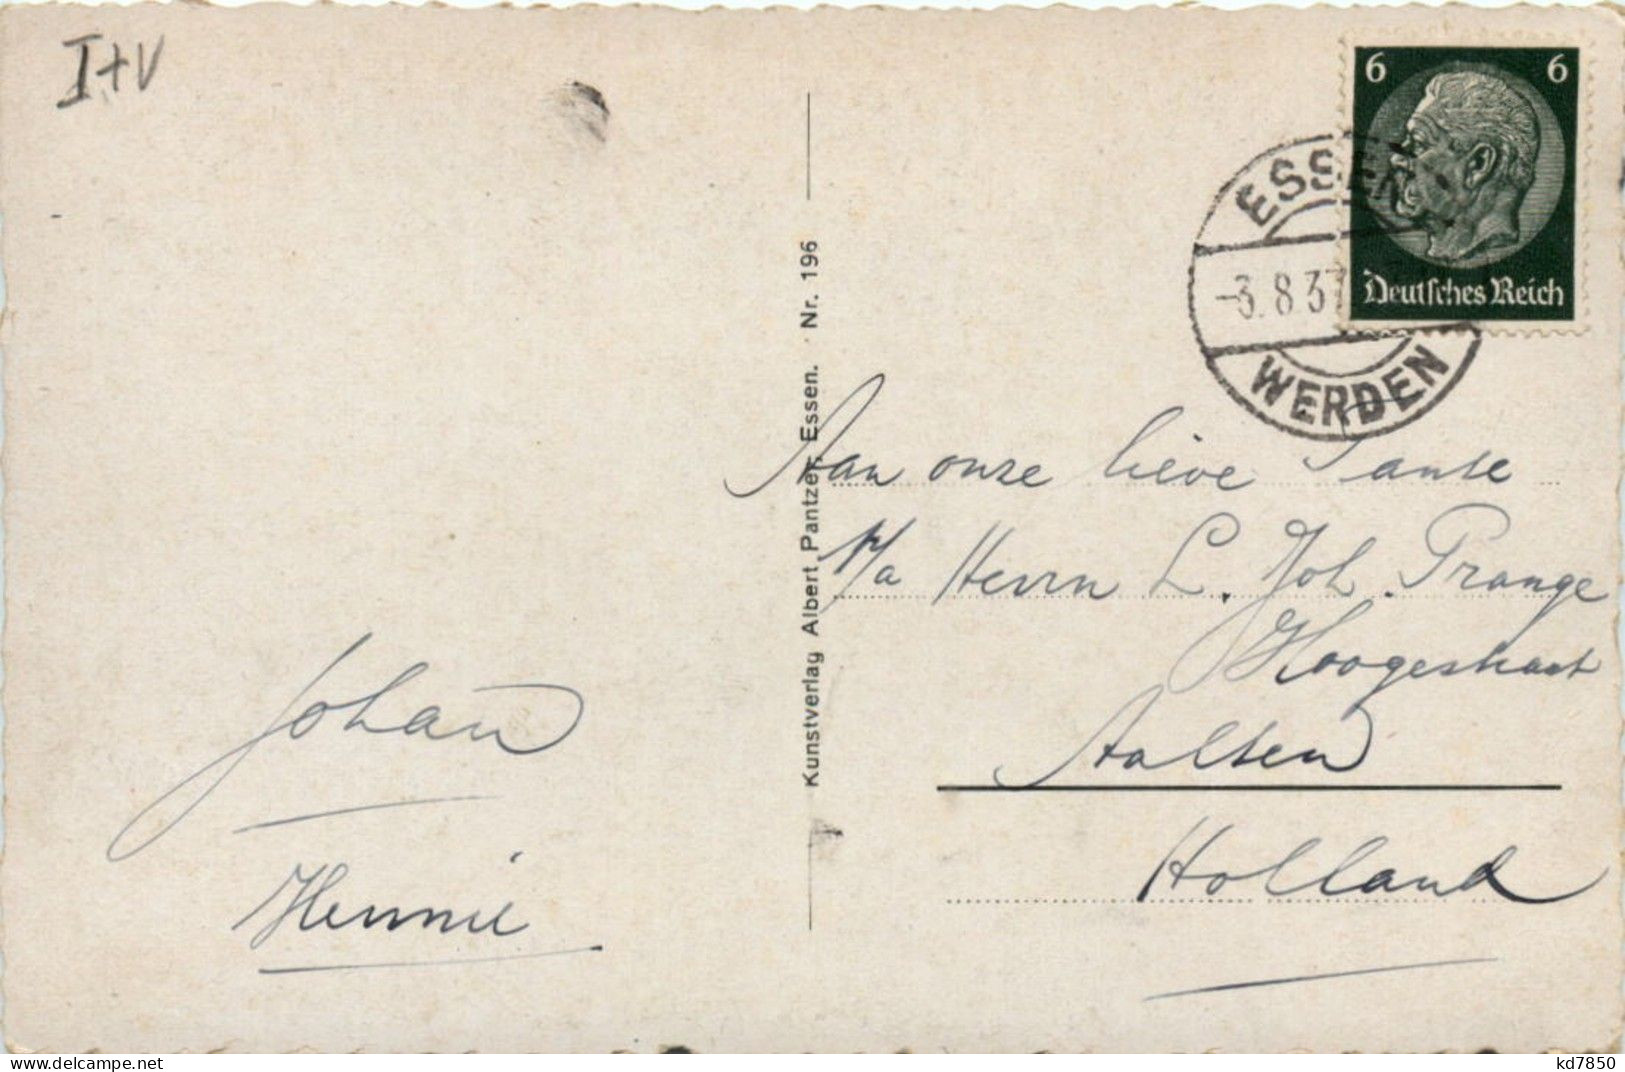 I+V
6 6
Deutsches Reich
ESSEN
-3.8.37
WERDEN
Kunstverlag Albert Pantzer, Essen. Nr. 196
Aan onze lieve Tante
p/a Herrn L. Joh. Prange
Hoogestraat
Aalten
Holland
Johan
Hennie
www.delcampe.net
kd7850